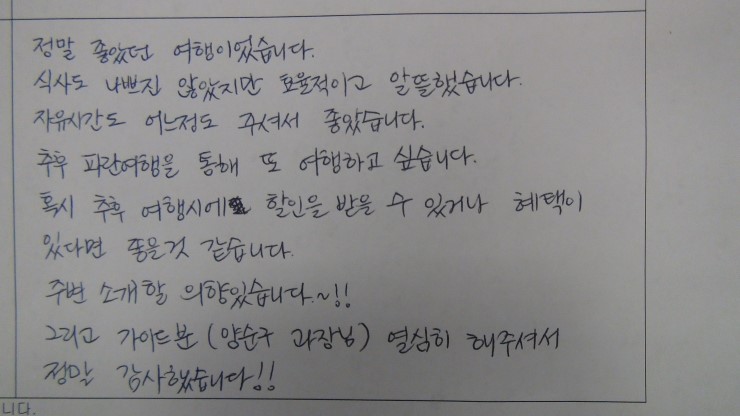 정말 좋았던 여행이었습니다.
식사도 나쁘진 않았지만 효율적이고 알뜰했습니다.
자유시간도 어느정도 주셔서 좋았습니다.
추후 파란여행을 통해 또 여행하고 싶습니다.
혹시 추후 여행시에 할인을 받을 수 있거나 혜택이
있다면 좋을것 같습니다.
주변 소개할 의향있습니다.~!!
그리고 가이드분 (양순구 과장님) 열심히 해주셔서
정말 감사했습니다!!
니다.